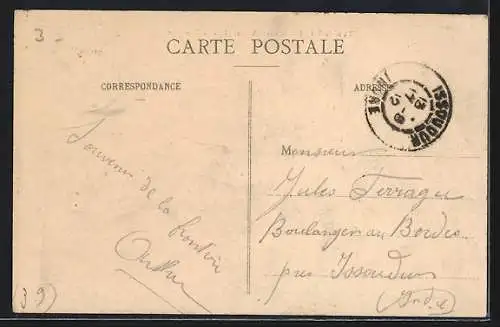 3
CARTE POSTALE
CORRESPONDANCE
ADRESSE
ISSOUDUN
INDRE
Souvenir de la
Arthur
Monsieur
Jules Ferragu
Boulanger au Bordes
près Issoudun
(Indre)
39)